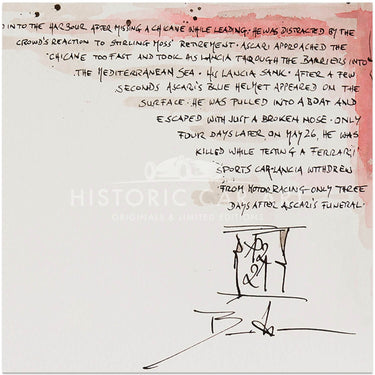 D INTO THE HARBOUR AFTER MISSING A CHICANE WHILE LEADING. HE WAS DISTRACTED BY THE
CROWD'S REACTION TO STIRLING MOSS' RETIREMENT. ASCARI APPROACHED THE
CHICANE TOO FAST AND TOOK HIS LANCIA THROUGH THE BARRIERS INTO
THE MEDITERRANEAN SEA. HIS LANCIA SANK. AFTER A FEW
SECONDS ASCARI'S BLUE HELMET APPEARED ON THE
SURFACE. HE WAS PULLED INTO A BOAT AND
ESCAPED WITH JUST A BROKEN NOSE. ONLY
FOUR DAYS LATER ON MAY 26, HE WAS
KILLED WHILE TESTING A FERRARI
SPORTS CAR. LANCIA WITHDREN
FROM MOTOR RACING ONLY THREE
DAYS AFTER ASCARI'S FUNERAL.
HISTORIC CAR ART
ORIGINALS & LIMITED EDITIONS